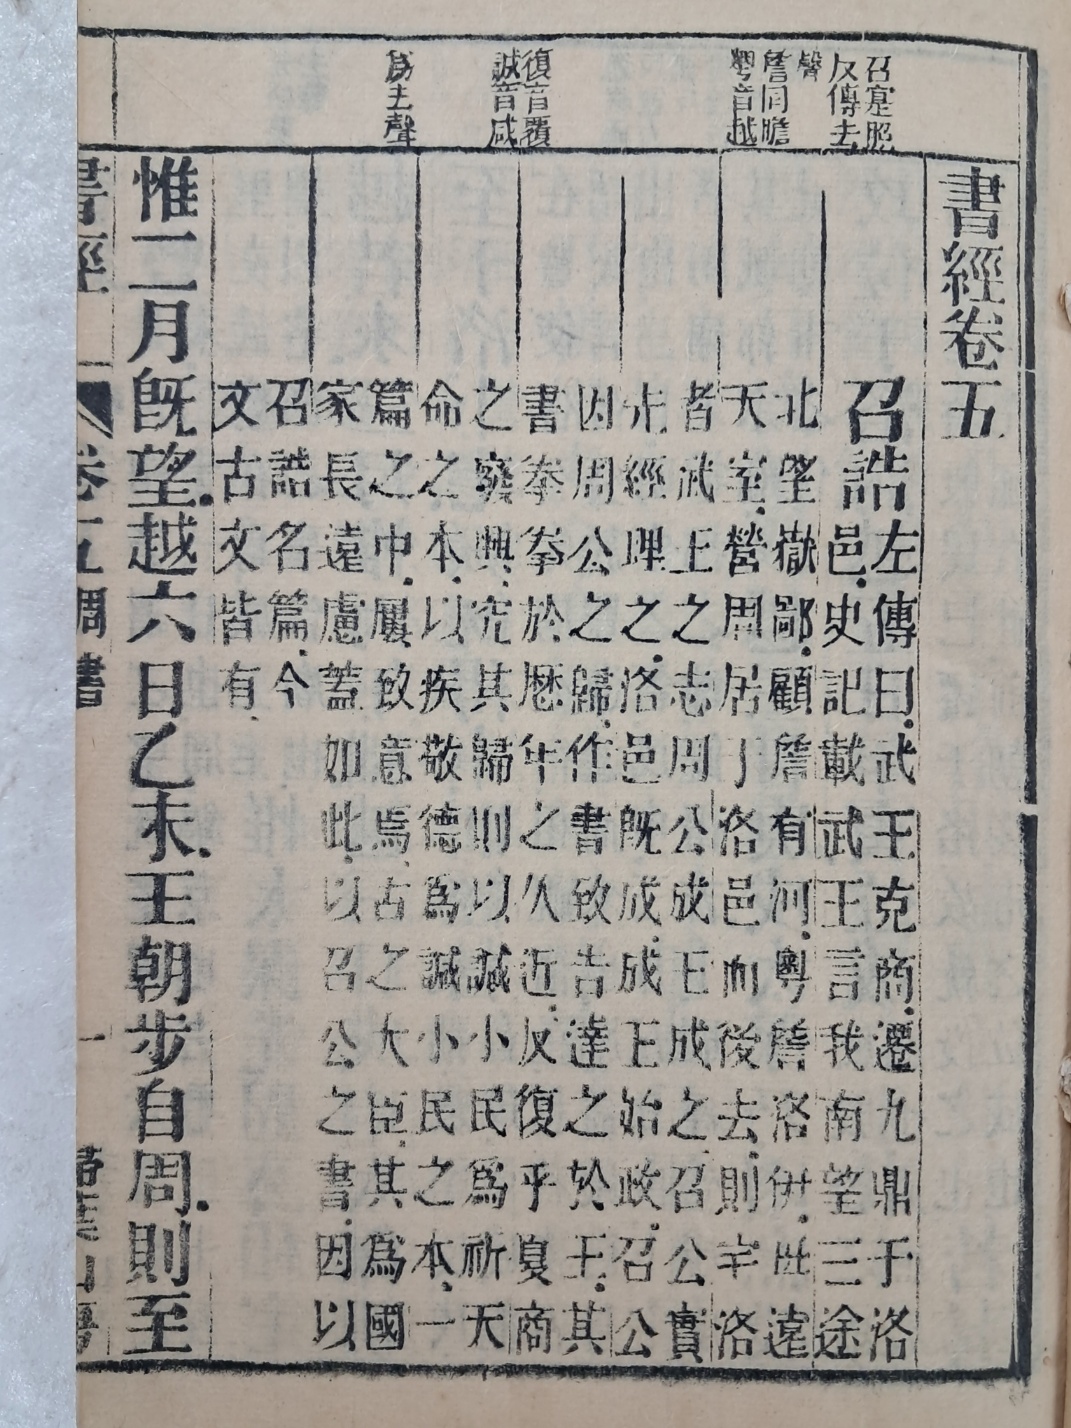 召寔照
反傳去
聲
詹同瞻
粵音越
復音覆
諴音咸
爲主聲
書經卷五
召誥
左傳曰.武王克商.遷九鼎于洛
邑.史記載武王言我南望三途
北望嶽鄙.顧詹有河.粵詹洛伊.毋遠
天室.營周居于洛邑而後去.則宅洛
者武王之志周公成王成之召公實
先經理之.洛邑既成.成王始政.召公
因周公之歸.作書致告達之於王.其
書拳拳於歷年之久近.反復乎夏商
之廢興.究其歸則以諴小民爲祈天
命之本.以疾敬德爲諴小民之本.一
篇之中.屢致意焉.古之大臣.其爲國
家長遠慮蓋如此.以召公之書.因以
召誥名篇.今
文古文皆有.
惟二月旣望.越六日乙未.王朝步自周.則至
書經 卷五周書 一 掃葉山房